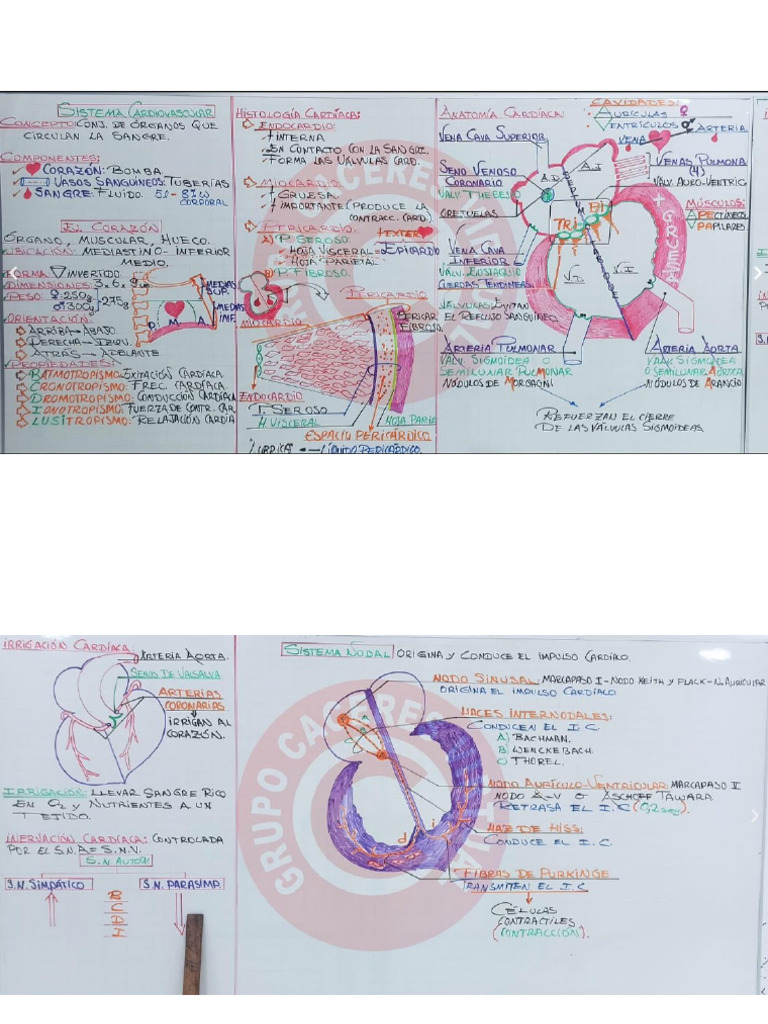 SISTEMA CARDIOVASCULAR
CONCEPTO: CONJ. DE ÓRGANOS QUE
CIRCULAN LA SANGRE.
COMPONENTES:
CORAZÓN: BOMBA.
VASOS SANGUÍNEOS: TUBERÍAS
SANGRE: FLUIDO. 5L - 8%
CORPORAL
EL CORAZÓN
ÓRGANO, MUSCULAR, HUECO.
UBICACIÓN: MEDIASTINO INFERIOR
MEDIO.
FORMA ▽ INVERTIDO
DIMENSIONES: 3 x 6 x 9 cm
PESO ♀ 250g
♂ 300g
275g
MEDIAS
SUP.
MEDIAS
INF.
P M A
ORIENTACIÓN:
ARRIBA → ABAJO.
DERECHA → IZQU.
ATRÁS → ADELANTE.
PROPIEDADES:
BATMOTROPISMO: EXITACIÓN CARDÍACA
CRONOTROPISMO: FREC. CARDÍACA.
DROMOTROPISMO: CONDUCCIÓN CARDÍACA
IONOTROPISMO: FUERZA DE CONTR. CAR
LUSITROPISMO: RELAJACIÓN CARDIA
HISTOLOGÍA CARDÍACA:
ENDOCARDIO:
INTERNA
EN CONTACTO CON LA SANGRE.
FORMA LAS VÁLVULAS CARD.
MIOCARDIO:
GRUESA.
IMPORTANTE (PRODUCE LA
CONTRACC. CARD.)
EPICARDIO:
EXTER
A) P. SEROSO:
HOJA VISCERAL = EPICARDIO
HOJA PARIETAL.
B) P. FIBROSO.
PERICARDIO
MIOCARDIO
PERICAR
FIBROSO
ENDOCARDIO
P. SEROSO
H VISCERAL
HOJA PARIE
ESPACIO PERICÁRDICO
LÍQUIDO PERICÁRDICO.
ANATOMÍA CARDÍACA
CAVIDADES:
AURÍCULAS ♀
VENTRÍCULOS ♂
ARTERIA
VENA
VENA CAVA SUPERIOR
SENO VENOSO
CORONARIO
VALV THEBESIO
OREJUELAS
VENA CAVA
INFERIOR
VALV. EUSTAQUIO
CUERDAS TENDINEAS
VÁLVULAS: EVITAN
EL REFLUJO SANGUÍNEO
A.D.
A.I
TRI
BI
V.D.
V.I.
+ GRUESA
VENAS PULMONA
(4)
VALV. AURO-VENTRIC
MÚSCULOS:
PECTÍNEOS
PAPILARES
ARTERIA PULMONAR
VALV SIGMOIDEA O
SEMILUNAR PULMONAR
NÓDULOS DE MORGAGNI
ARTERIA AORTA
VALV. SIGMOIDEA
O SEMILUNAR AÓRTICA
NÓDULOS DE ARANCIO
REFUERZAN EL CIERRE
DE LAS VÁLVULAS SIGMOIDEAS
IRRIGACIÓN CARDÍACA
ARTERIA AORTA.
SENOS DE VALSALVA
ARTERIAS
CORONARIAS
IRRIGAN AL
CORAZÓN.
IRRIGACIÓN: LLEVAR SANGRE RICO
EN O2 Y NUTRIENTES A UN
TEJIDO.
INERVACIÓN CARDÍACA: CONTROLADA
POR EL S.N.A = S.N.V.
S.N AUTÓN
S.N. SIMPÁTICO
S.N. PARASIMP.
B
C
D
I
SISTEMA NODAL ORIGINA Y CONDUCE EL IMPULSO CARDÍACO.
NODO SINUSAL: MARCAPASO I - NODO KEITH Y FLACK - N. AURICULAR
ORIGINA EL IMPULSO CARDÍACO
HACES INTERNODALES:
CONDUCEN EL I.C.
A) BACHMAN.
B) WENCKEBACH.
C) THOREL.
NODO AURÍCULO-VENTRICULAR: MARCAPASO II
NODO A-V O ASCHOFF TAWARA
RETRASA EL I.C
HAZ DE HISS:
CONDUCE EL I.C.
FIBRAS DE PURKINGE
TRANSMITEN EL I.C.
CÉLULAS
CONTRACTILES
(CONTRACCIÓN).
d
i
GRUPO CACERES